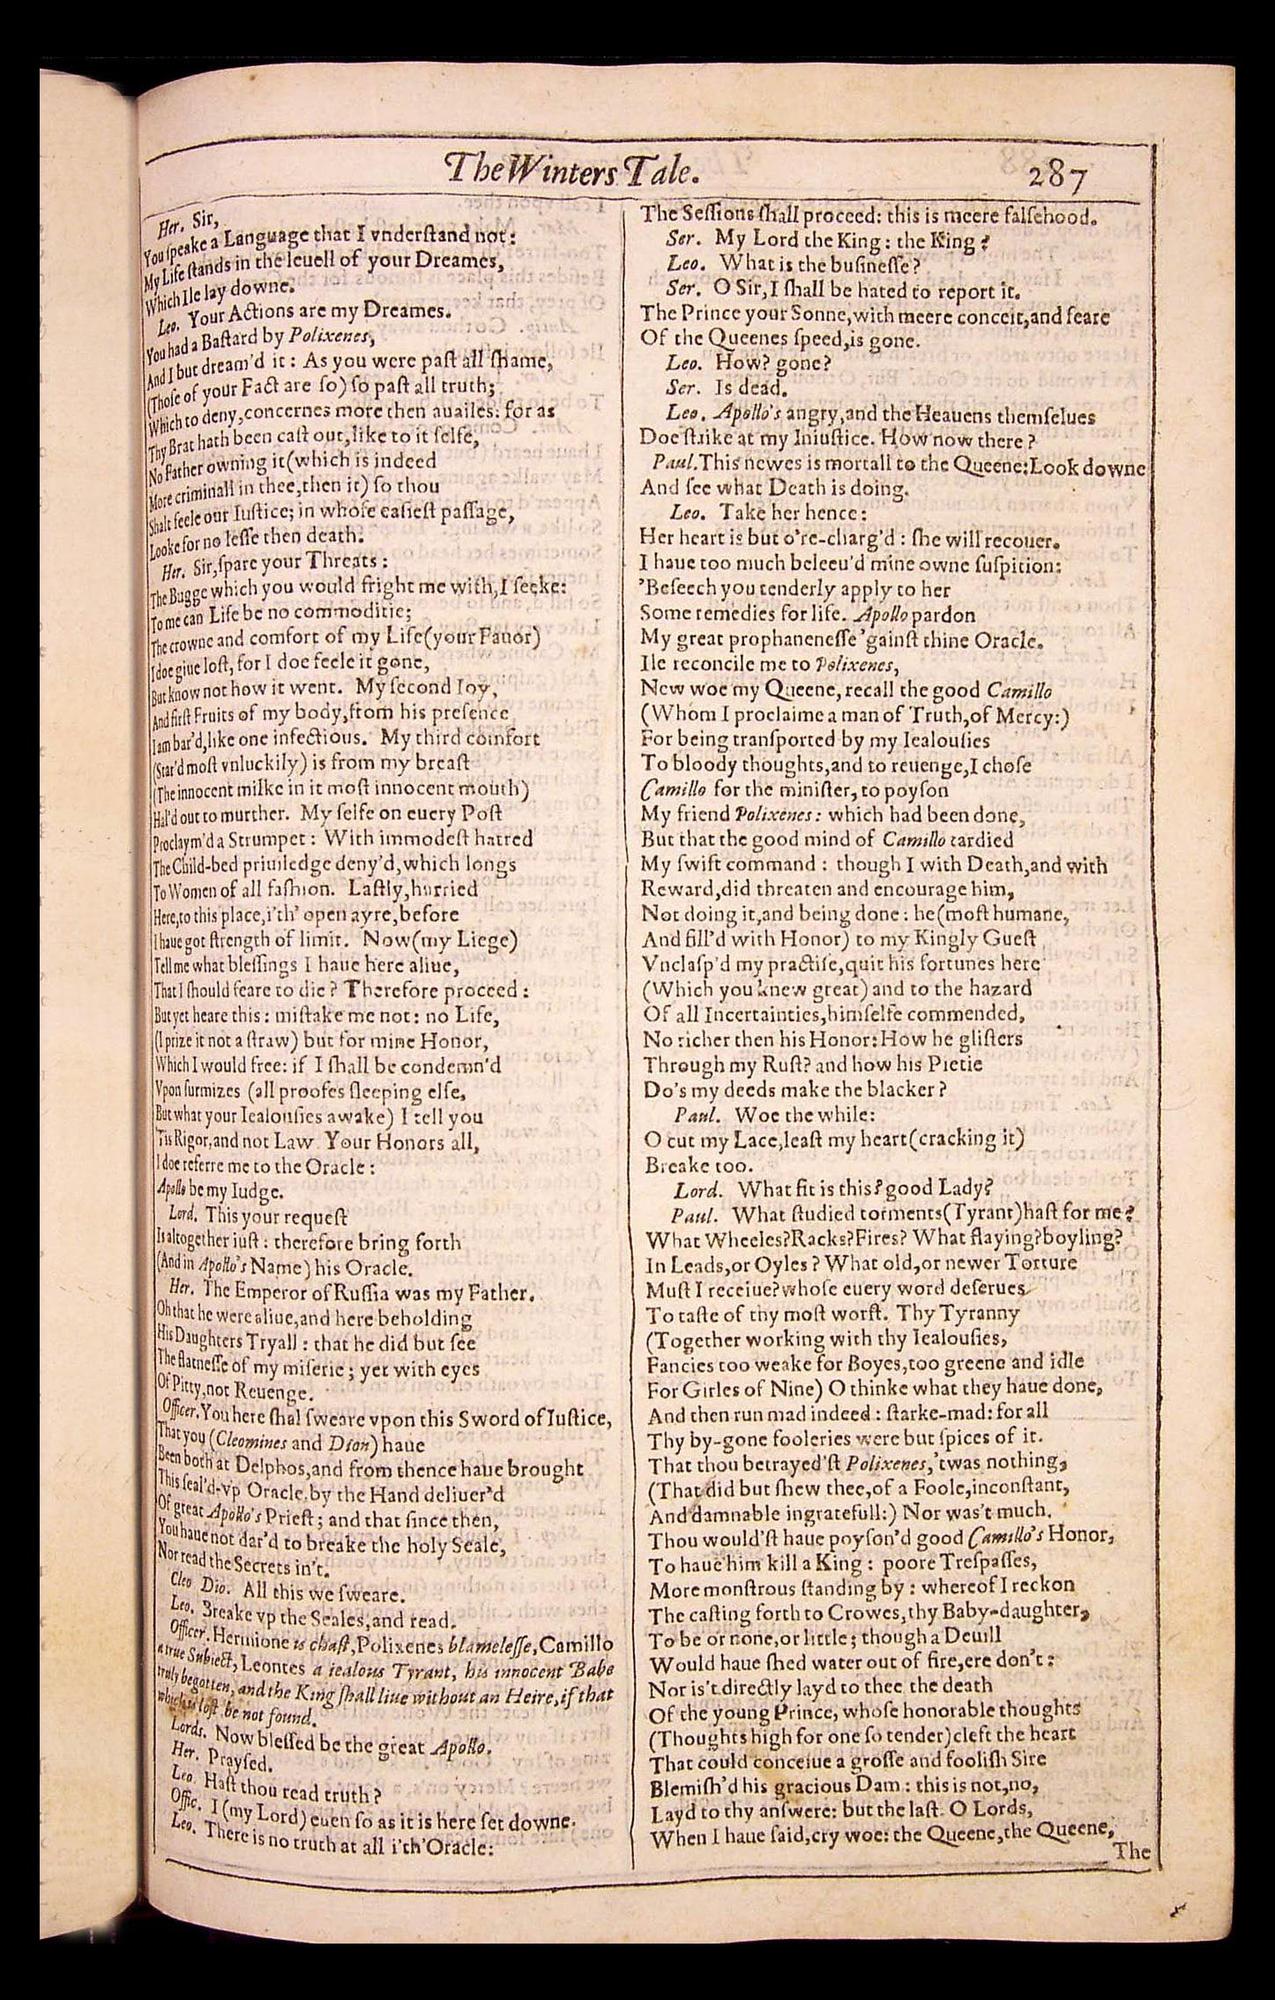 The Winters Tale. 287
Her. Sir,
You ſpeake a Language that I vnderſtand not:
My Life ſtands in the leuell of your Dreames,
Which Ile lay downe.
Leo. Your Actions are my Dreames.
You had a Baſtard by Polixenes,
And I but dream'd it: As you were paſt all ſhame,
(Thoſe of your Fact are ſo) ſo paſt all truth;
Which to deny, concernes more then auailes: for as
Thy Brat hath been caſt out, like to it ſelfe,
No Father owning it (which is indeed
More criminall in thee, then it) ſo thou
Shalt feele our Iuſtice; in whoſe eaſieſt paſſage,
Looke for no leſſe then death.
Her. Sir, ſpare your Threats:
The Bugge which you would fright me with, I ſeeke:
To me can Life be no commoditie;
The crowne and comfort of my Life (your Fauor)
I doe giue loſt, for I doe feele it gone,
But know not how it went. My ſecond Ioy,
And firſt Fruits of my body, from his preſence
I am bar'd, like one infectious. My third comfort
(Star'd moſt vnluckily) is from my breaſt
(The innocent milke in it moſt innocent mouth)
Hal'd out to murther. My ſelfe on euery Poſt
Proclaym'd a Strumpet: With immodeſt hatred
The Child-bed priuiledge deny'd, which longs
To Women of all faſhion. Laſtly, hurried
Here, to this place, i'th' open ayre, before
I haue got ſtrength of limit. Now (my Liege)
Tell me what bleſſings I haue here aliue,
That I ſhould feare to die? Therefore proceed:
But yet heare this: miſtake me not: no Life,
(I prize it not a ſtraw) but for mine Honor,
Which I would free: if I ſhall be condemn'd
Vpon ſurmizes (all proofes ſleeping elſe,
But what your Iealouſies awake) I tell you
'Tis Rigor, and not Law. Your Honors all,
I doe referre me to the Oracle:
Apollo be my Iudge.
Lord. This your requeſt
Is altogether iuſt: therefore bring forth
(And in Apollo's Name) his Oracle.
Her. The Emperor of Ruſſia was my Father.
Oh that he were aliue, and here beholding
His Daughters Tryall: that he did but ſee
The flatneſſe of my miſerie; yet with eyes
Of Pitty, not Reuenge.
Officer. You here ſhal ſweare vpon this Sword of Iuſtice,
That you (Cleomines and Dion) haue
Been both at Delphos, and from thence haue brought
This ſeal'd-vp Oracle, by the Hand deliuer'd
Of great Apollo's Prieſt; and that ſince then,
You haue not dar'd to breake the holy Seale,
Nor read the Secrets in't.
Cleo Dio. All this we ſweare.
Leo. Breake vp the Seales, and read.
Officer. Hermione is chaſt, Polixenes blameleſſe, Camillo
a true Subiect, Leontes a iealous Tyrant, his innocent Babe
truly begotten, and the King ſhall liue without an Heire, if that
which is loſt, be not found.
Lords. Now bleſſed be the great Apollo.
Her. Prayſed.
Leo. Haſt thou read truth?
Offic. I (my Lord) euen ſo as it is here ſet downe.
Leo. There is no truth at all i'th' Oracle:
The Seſſions ſhall proceed: this is meere falſehood.
Ser. My Lord the King: the King?
Leo. What is the buſineſſe?
Ser. O Sir, I ſhall be hated to report it.
The Prince your Sonne, with meere conceit, and feare
Of the Queenes ſpeed, is gone.
Leo. How? gone?
Ser. Is dead.
Leo. Apollo's angry, and the Heauens themſelues
Doe ſtrike at my Iniuſtice. How now there?
Paul. This newes is mortall to the Queene: Look downe
And ſee what Death is doing.
Leo. Take her hence:
Her heart is but o're-charg'd: ſhe will recouer.
I haue too much beleeu'd mine owne ſuſpition:
'Beſeech you tenderly apply to her
Some remedies for life. Apollo pardon
My great prophaneneſſe 'gainſt thine Oracle.
Ile reconcile me to Polixenes,
New woe my Queene, recall the good Camillo
(Whom I proclaime a man of Truth, of Mercy:)
For being tranſported by my Iealouſies
To bloody thoughts, and to reuenge, I choſe
Camillo for the miniſter, to poyſon
My friend Polixenes: which had been done,
But that the good mind of Camillo tardied
My ſwift command: though I with Death, and with
Reward, did threaten and encourage him,
Not doing it, and being done: he (moſt humane,
And fill'd with Honor) to my Kingly Gueſt
Vnclaſp'd my practiſe, quit his fortunes here
(Which you knew great) and to the hazard
Of all Incertainties, himſelfe commended,
No richer then his Honor: How he gliſters
Through my Ruſt? and how his Pietie
Do's my deeds make the blacker?
Paul. Woe the while:
O cut my Lace, leaſt my heart (cracking it)
Breake too.
Lord. What fit is this? good Lady?
Paul. What ſtudied torments (Tyrant) haſt for me?
What Wheeles? Racks? Fires? What flaying? boyling?
In Leads, or Oyles? What old, or newer Torture
Muſt I receiue? whoſe euery word deſerues
To taſte of thy moſt worſt. Thy Tyranny
(Together working with thy Iealouſies,
Fancies too weake for Boyes, too greene and idle
For Girles of Nine) O thinke what they haue done,
And then run mad indeed: ſtarke-mad: for all
Thy by-gone fooleries were but ſpices of it.
That thou betrayed'ſt Polixenes, 'twas nothing,
(That did but ſhew thee, of a Foole, inconſtant,
And damnable ingratefull:) Nor was't much.
Thou would'ſt haue poyſon'd good Camillo's Honor,
To haue him kill a King: poore Treſpaſſes,
More monſtrous ſtanding by: whereof I reckon
The caſting forth to Crowes, thy Baby-daughter,
To be or none, or little; though a Deuill
Would haue ſhed water out of fire, ere don't:
Nor is't directly layd to thee the death
Of the young Prince, whoſe honorable thoughts
(Thoughts high for one ſo tender) cleft the heart
That could conceiue a groſſe and fooliſh Sire
Blemiſh'd his gracious Dam: this is not, no,
Layd to thy anſwere: but the laſt. O Lords,
When I haue ſaid, cry woe: the Queene, the Queene,
The